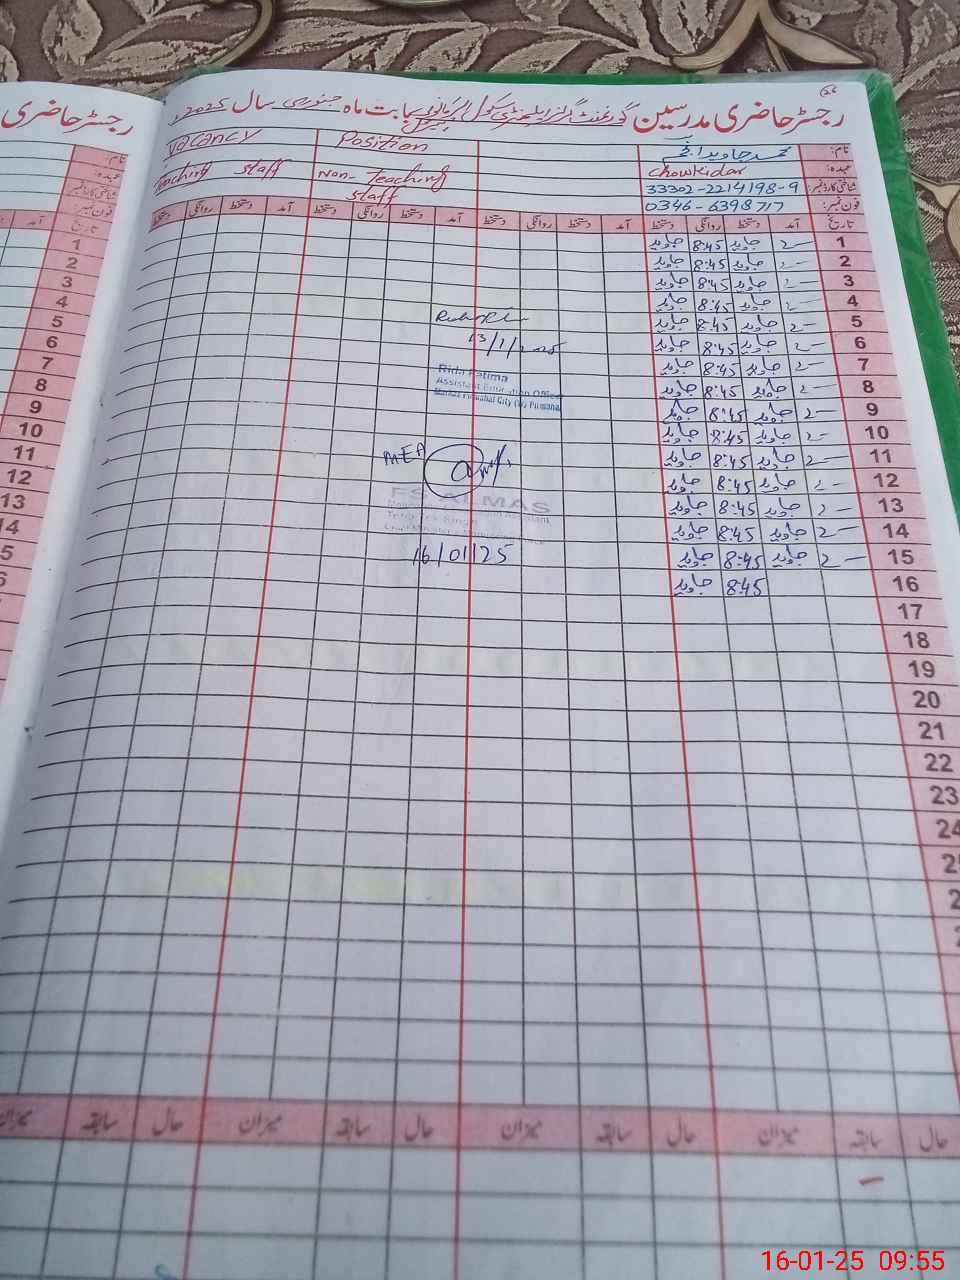 رجسٹر حاضری مدرسین گورنمنٹ گرلز ایلیمنٹری سکول بابت ماہ جنوری سال 2025ء
رجسٹر حاضری
Vacancy Position
نام: محمد جاوید
Teaching Staff Non-Teaching Staff
عہدہ: Chowkidar
شناختی کارڈ نمبر: 33302-2214198-9
فون نمبر: 0346-6398717
تاریخ آمد دستخط روانگی دستخط آمد دستخط روانگی دستخط آمد دستخط روانگی دستخط
1 2 جاوید 8:45 جاوید
2 2 جاوید 8:45 جاوید
3 2 جاوید 8:45 جاوید
4 2 جاوید 8:45 جاوید
5 2 جاوید 8:45 جاوید
6 2 جاوید 8:45 جاوید
7 2 جاوید 8:45 جاوید
8 2 جاوید 8:45 جاوید
9 2 جاوید 8:45 جاوید
10 2 جاوید 8:45 جاوید
11 2 جاوید 8:45 جاوید
12 2 جاوید 8:45 جاوید
13 2 جاوید 8:45 جاوید
14 2 جاوید 8:45 جاوید
15 2 جاوید 8:45 جاوید
16 8:45 جاوید
17
18
19
20
21
22
23
24
13/1/2025
Rida Fatima
Assistant Education Officer
MEA
16/01/25
حال سابقہ میزان حال سابقہ میزان حال سابقہ میزان حال سابقہ میزان
تاریخ آمد
1
2
3
4
5
6
7
8
9
10
11
12
13
14
16-01-25 09:55